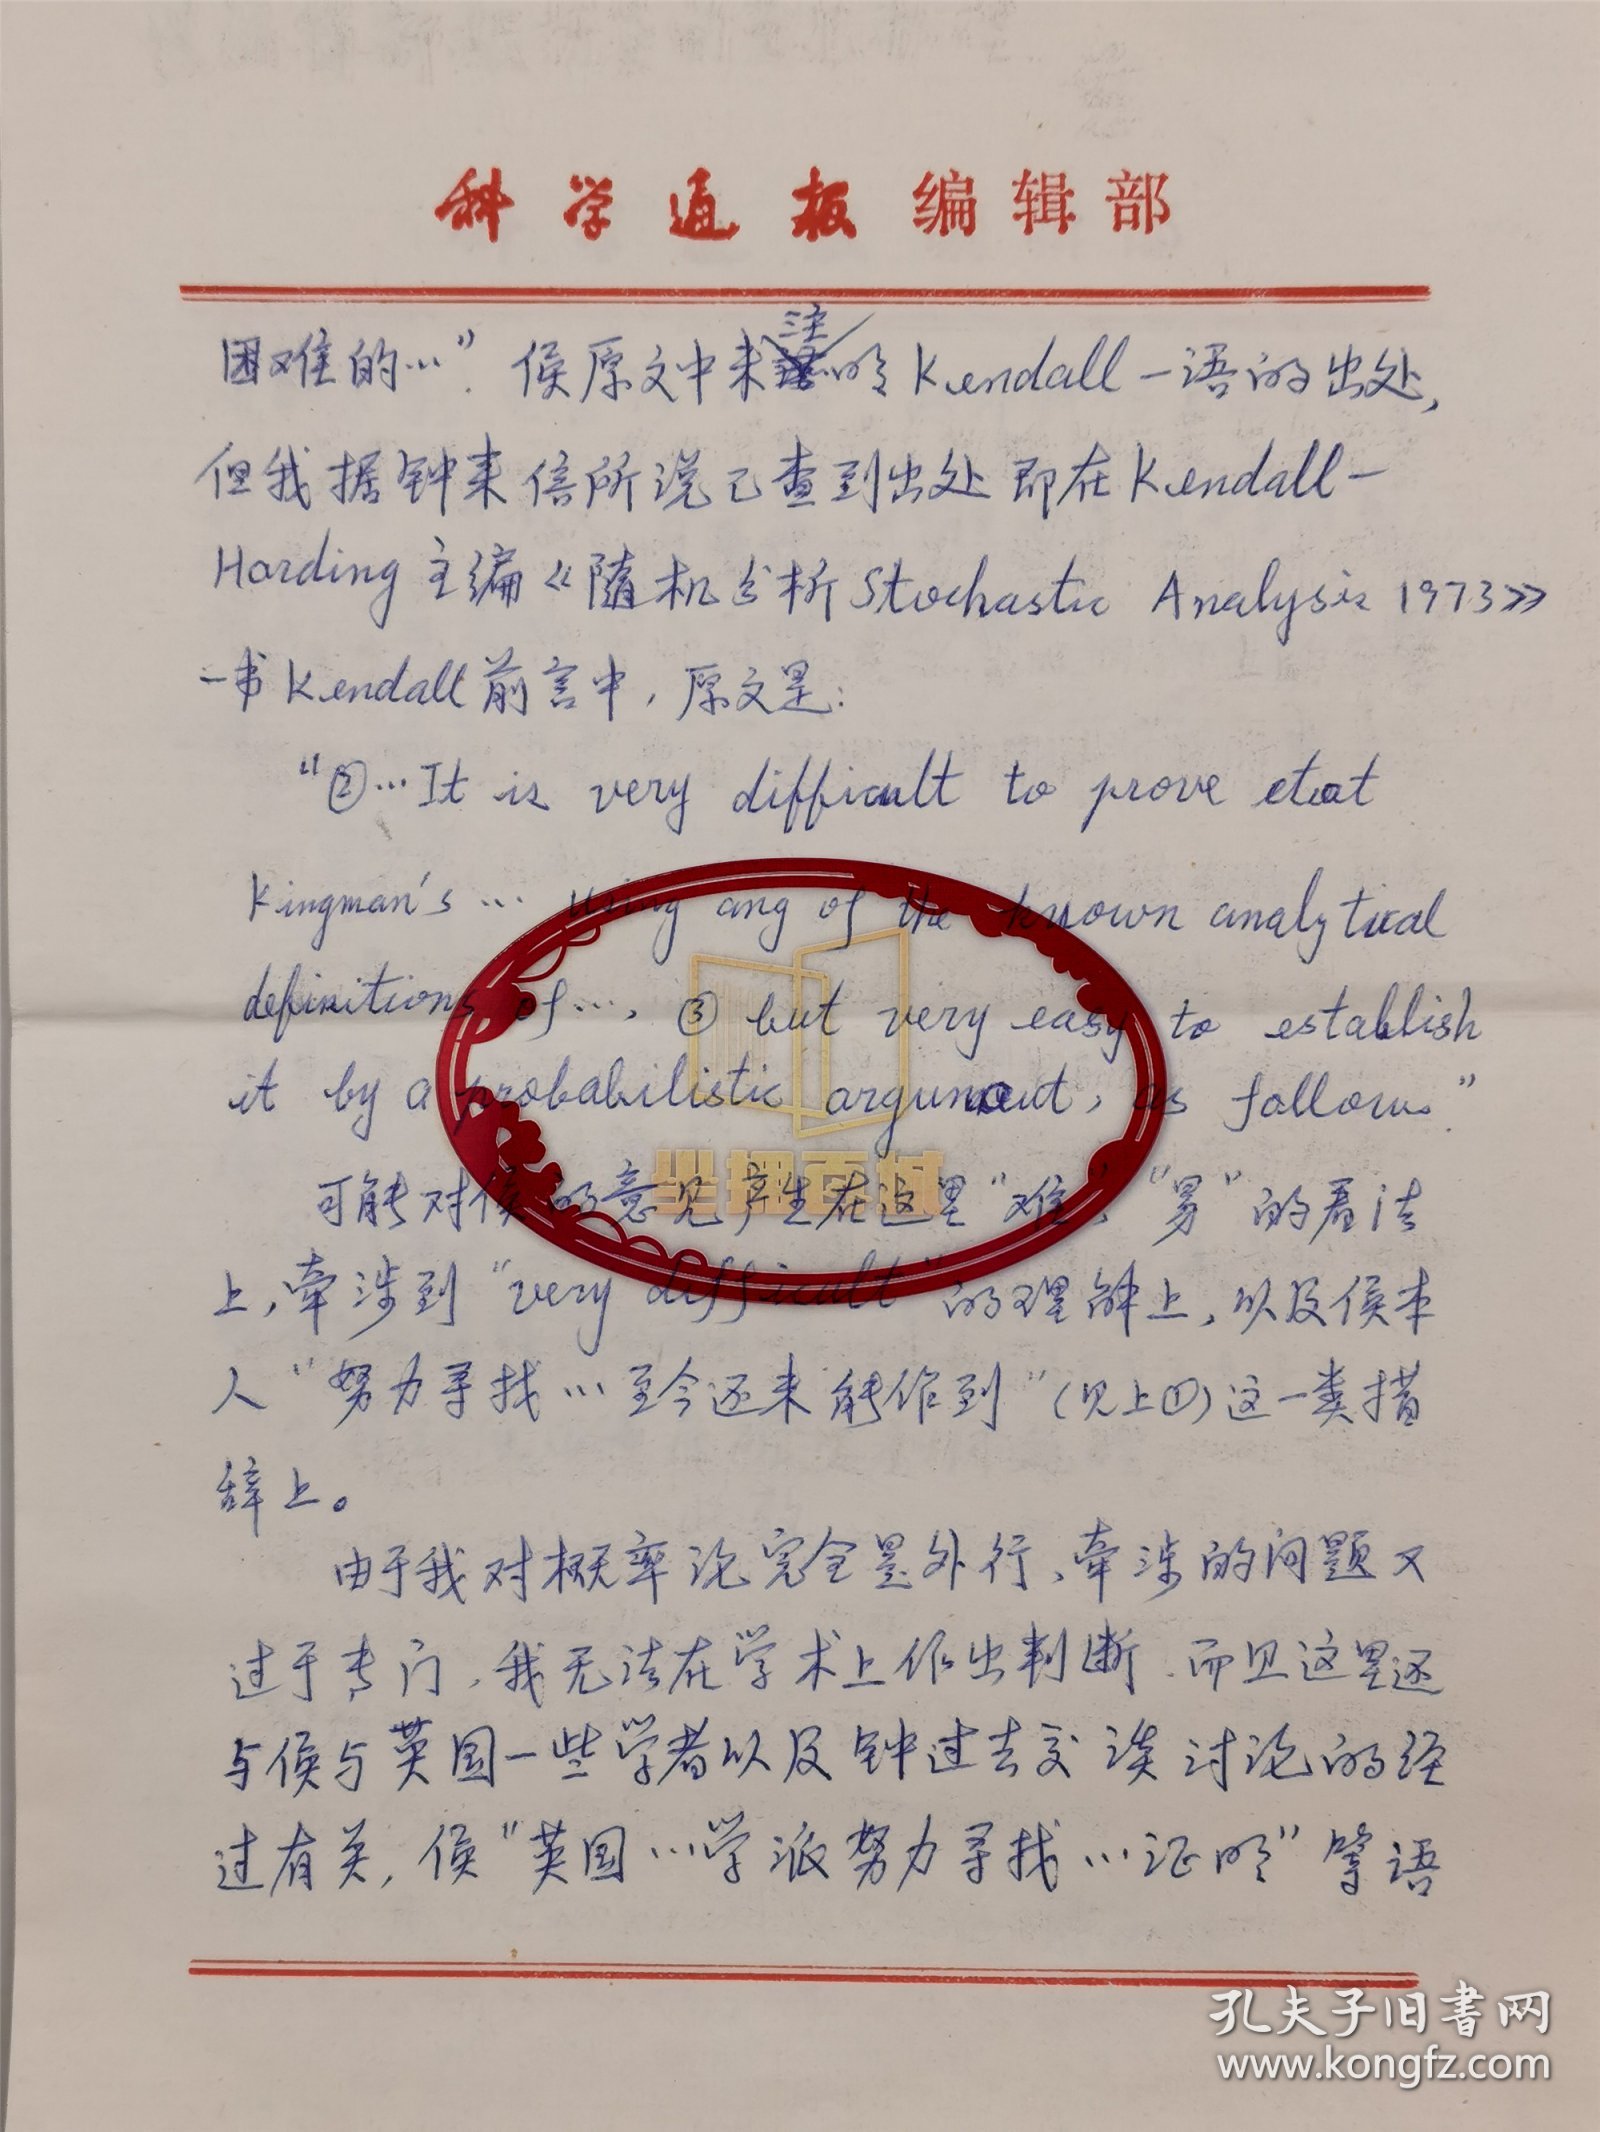 科学通报编辑部
困难的…”. 侯原文中未注明Kendall一语的出处,
但我据钟来信所说已查到出处即在Kendall-
Harding主编《随机分析Stochastic Analysis 1973》
一书Kendall前言中, 原文是:
“②…It is very difficult to prove that
Kingman's … using any of the known analytical
definitions of …, ③ but very easy to establish
it by a probabilistic argument, as follows”.
可能对侯的意见产生在这里“难”、“易”的看法
上, 牵涉到“very difficult”的理解上, 以及侯本
人“努力寻找…至今还未能作到”(见上①)这一类措
辞上。
由于我对概率论完全是外行、牵涉的问题又
过于专门, 我无法在学术上作出判断. 而且这里还
与侯与英国一些学者以及钟过去交谈讨论的经
过有关, 侯“英国…学派努力寻找…证明”等语
孔夫子旧书网
www.kongfz.com